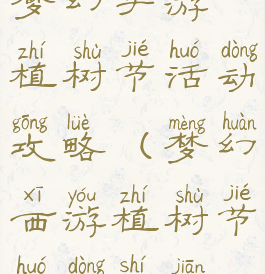 梦幻手游
zhí shù jié huó dòng
植树节活动
gōng lüè mèng huàn
攻略（梦幻
xī yóu zhí shù jié
西游植树节
huó dòng shí jiān